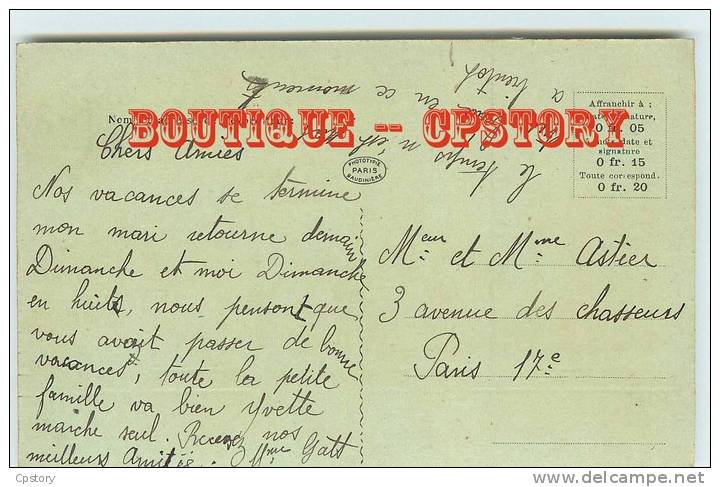 BOUTIQUE -- CPSTORY
Affranchir à :
0 fr. 05
date et
signature
0 fr. 15
Toute correspond.
0 fr. 20
PHOTOTYPIE
PARIS
BAUDINIÈRE
a bientot
en ce moment
le temps n'est pas
Chers Amies
Nos vacances se termine
mon mari retourne demain
Dimanche et moi Dimanche
en huit, nous pensont que
vous avait passer de bonne
vacances, toute la petite
famille va bien Yvette
marche seul. Recevez nos
meilleurs Amitiés. Mme Gatt
Meur et Mme Astier
3 avenue des chasseurs
Paris 17e
Cpstory
delcampe.net